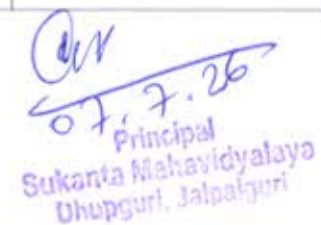 07.7.26
Principal
Sukanta Mahavidyalaya
Dhupguri, Jalpaiguri